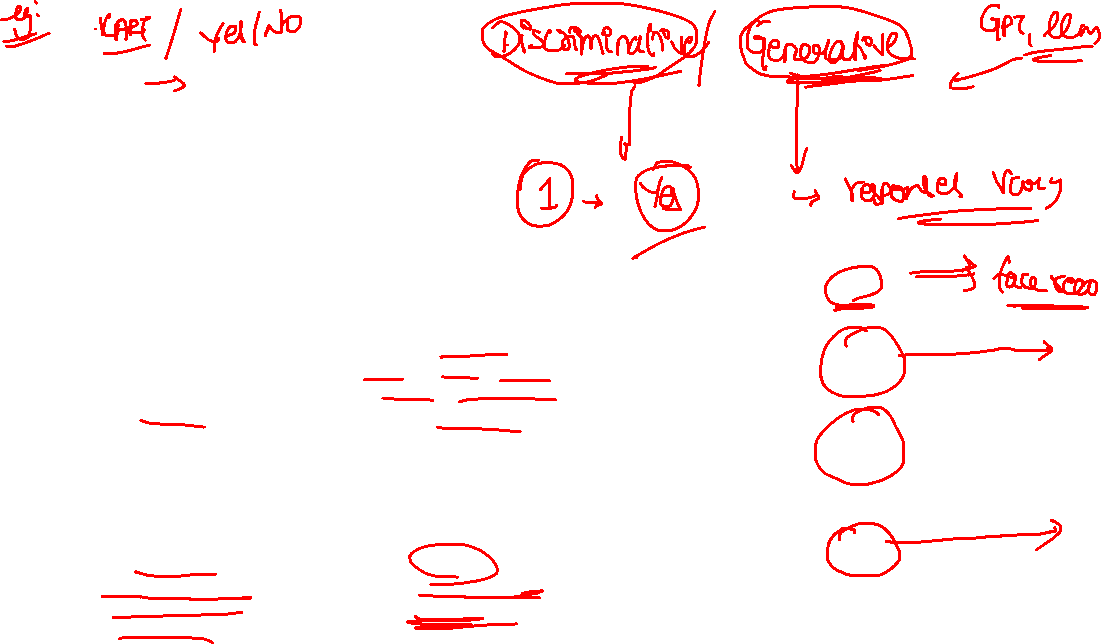 eg: / Yes/No
Discriminative / Generative
GPT, llm
1 → Yes
→ responses vary